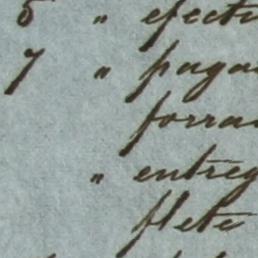 5 " efect
7 " paga
forra
" entreg
flete